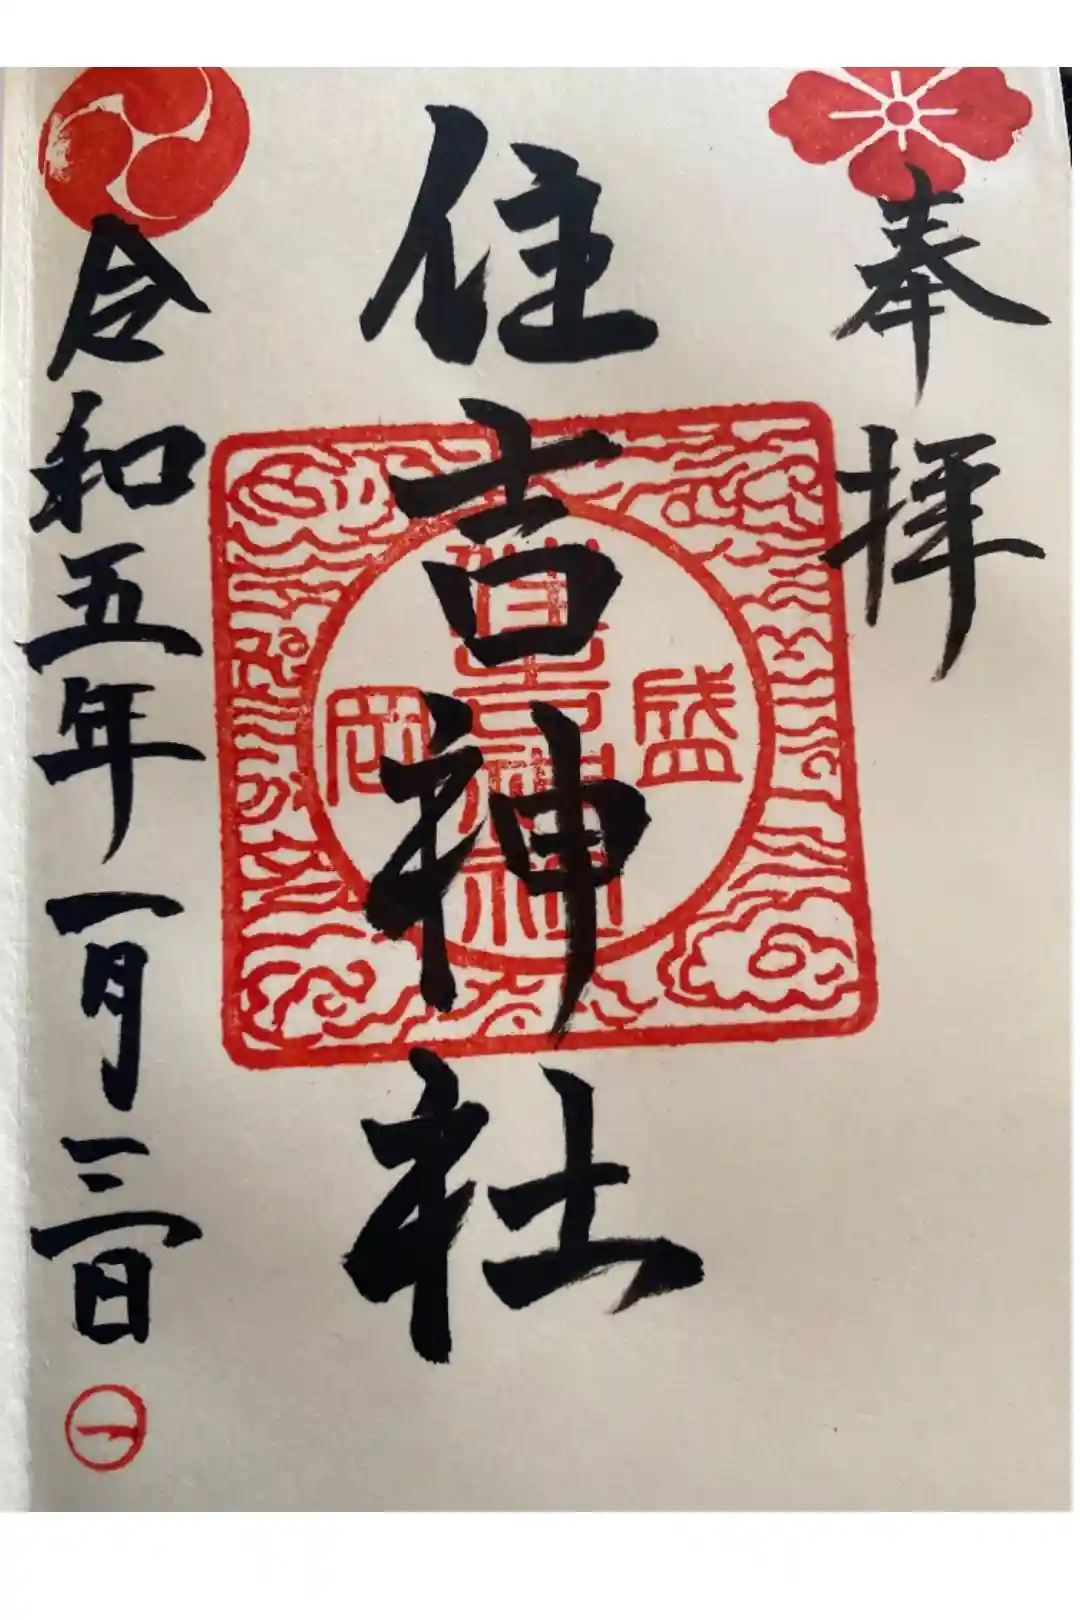 奉拝
住吉神社
盛
住吉神社
岡
令和五年一月三日
一